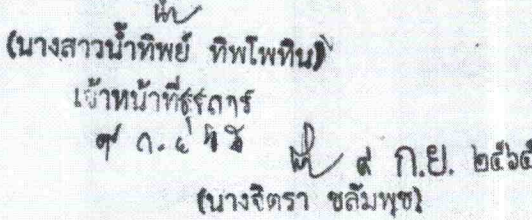 (นางสาวน้ำทิพย์ ทิพโพทิน)
เจ้าหน้าที่ธุรการ
๙ ก.ย. ๖๕
๙ ก.ย. ๒๕๖๕
(นางจิตรา ชลัมพุช)